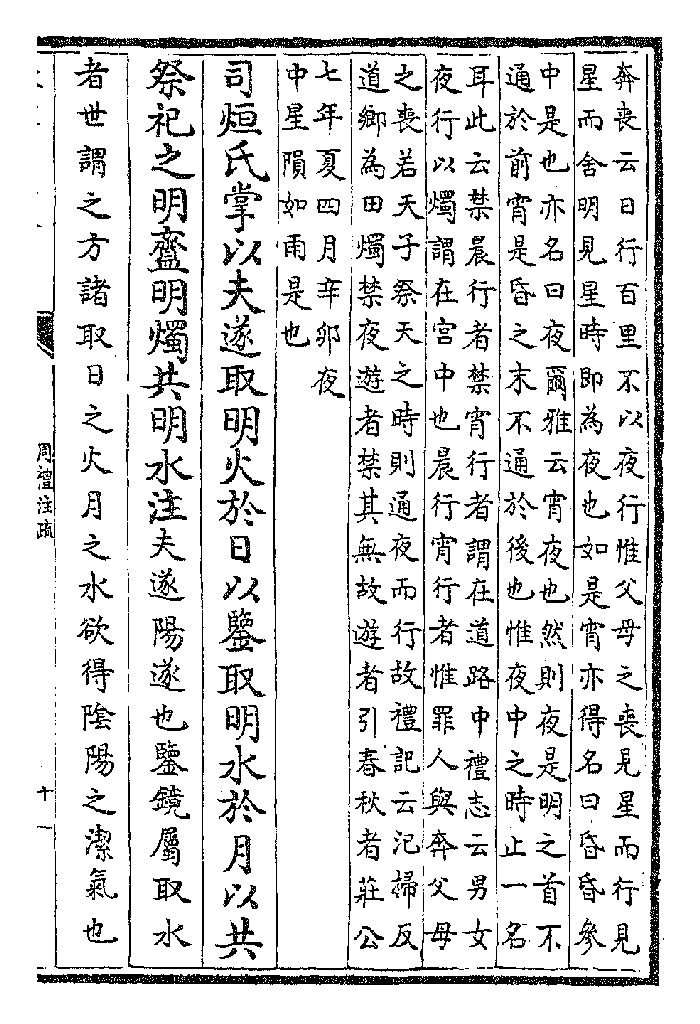 奔喪云日行百里不以夜行惟父母之喪見星而行見
星而舍明見星時即為夜也如是宵亦得名曰昏昏參
中是也亦名曰夜爾雅云宵夜也然則夜是明之首不
通於前宵是昏之末不通於後也惟夜中之時止一名
耳此云禁晨行者禁宵行者謂在道路中禮志云男女
夜行以燭謂在宫中也晨行宵行者惟罪人與奔父母
之喪若天子祭天之時則通夜而行故禮記云汜掃反
道鄉為田燭禁夜遊者禁其無故遊者引春秋者莊公
七年夏四月辛卯夜
中星隕如雨是也
司烜氏掌以夫遂取明火於日以鑒取明水於月以共
祭祀之明齍明燭共明水注夫遂陽遂也鑒鏡屬取水
者世謂之方諸取日之火月之水欲得陰陽之潔氣也
周禮注疏
十一